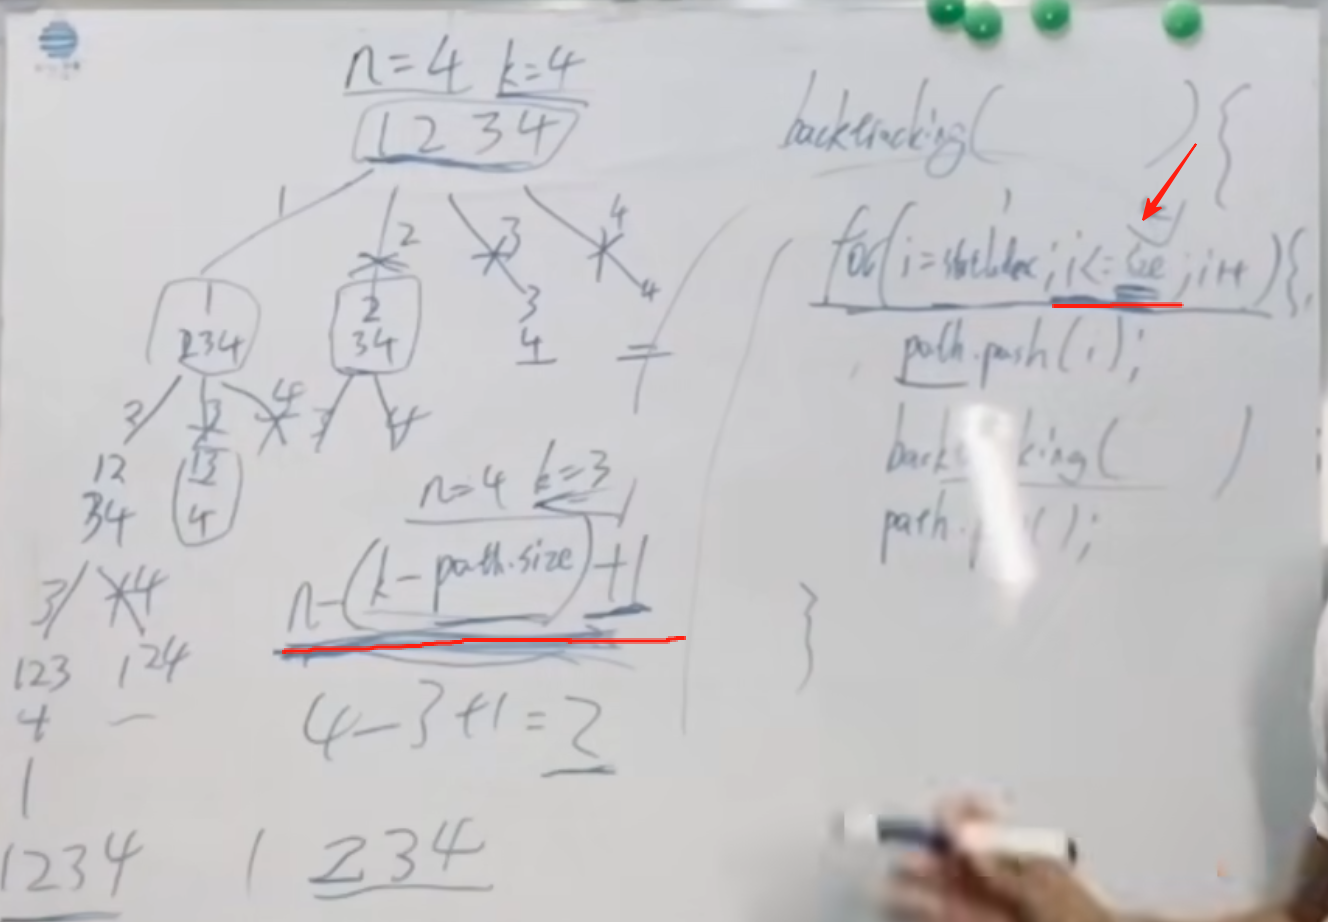 n=4 k=4
1 2 3 4
1 2 3 4
1
234
2
34
3
4
4
2 3 4
3 4
12
34
13
4
3 4
123
4
124
1
1234
n=4 k=3
n-(k-path.size)+1
4-3+1=2
1 234
backtracking( ){
for(i= ;i<= ;i++){
path.push(i);
backtracking( )
path. ();
}